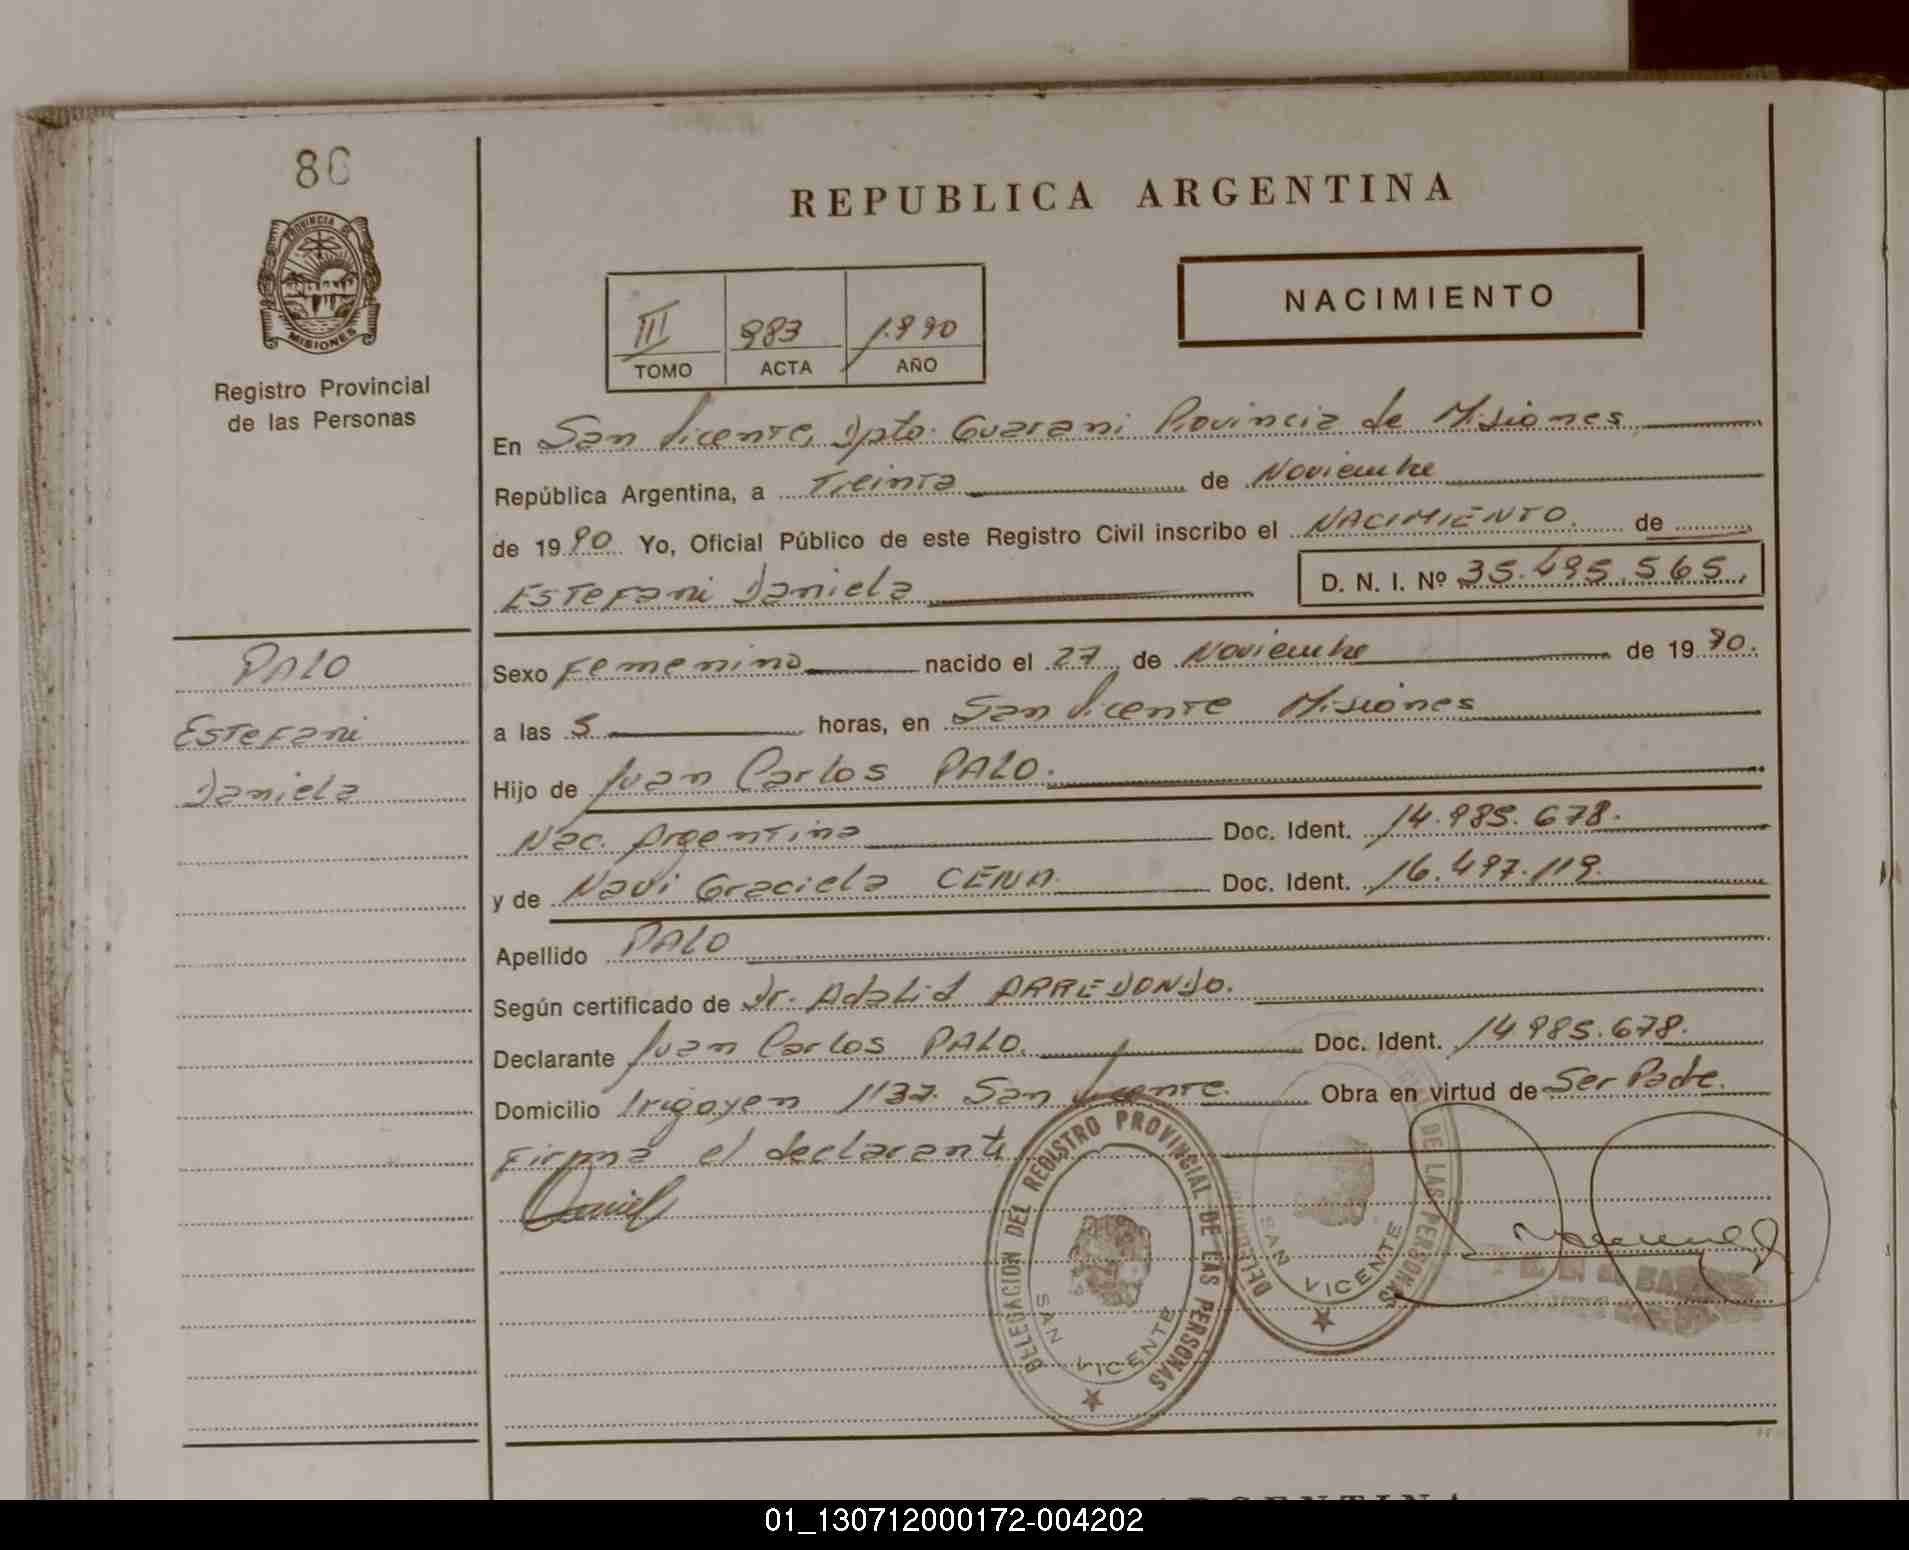 86
PROVINCIA DE
MISIONES
Registro Provincial
de las Personas
REPUBLICA ARGENTINA
NACIMIENTO
III 983 1.990
TOMO ACTA AÑO
En San Vicente, Dpto. Guarani Provincia de Misiones
República Argentina, a Treinta de Noviembre
de 1990 Yo, Oficial Público de este Registro Civil inscribo el NACIMIENTO. de
Estefani Daniela D. N. I. Nº 35.495.565.
PALO
Estefani
Daniela
Sexo Femenino nacido el 27 de Noviembre de 1990.
a las 5 horas, en San Vicente Misiones
Hijo de Juan Carlos PALO.
Nac. Argentina Doc. Ident. 14.985.678.
y de Navi Graciela CENA Doc. Ident. 16.497.119.
Apellido PALO
Según certificado de Dr. Adalid ARREDONDO.
Declarante Juan Carlos PALO. Doc. Ident. 14985.678.
Domicilio Irigoyen 1137. San Vicente. Obra en virtud de Ser Padre.
Firma el declarante
DELEGACION DEL REGISTRO PROVINCIAL DE LAS PERSONAS
SAN VICENTE
DE LAS PERSONAS
SAN VICENTE
ARGENTINA
01_130712000172-004202